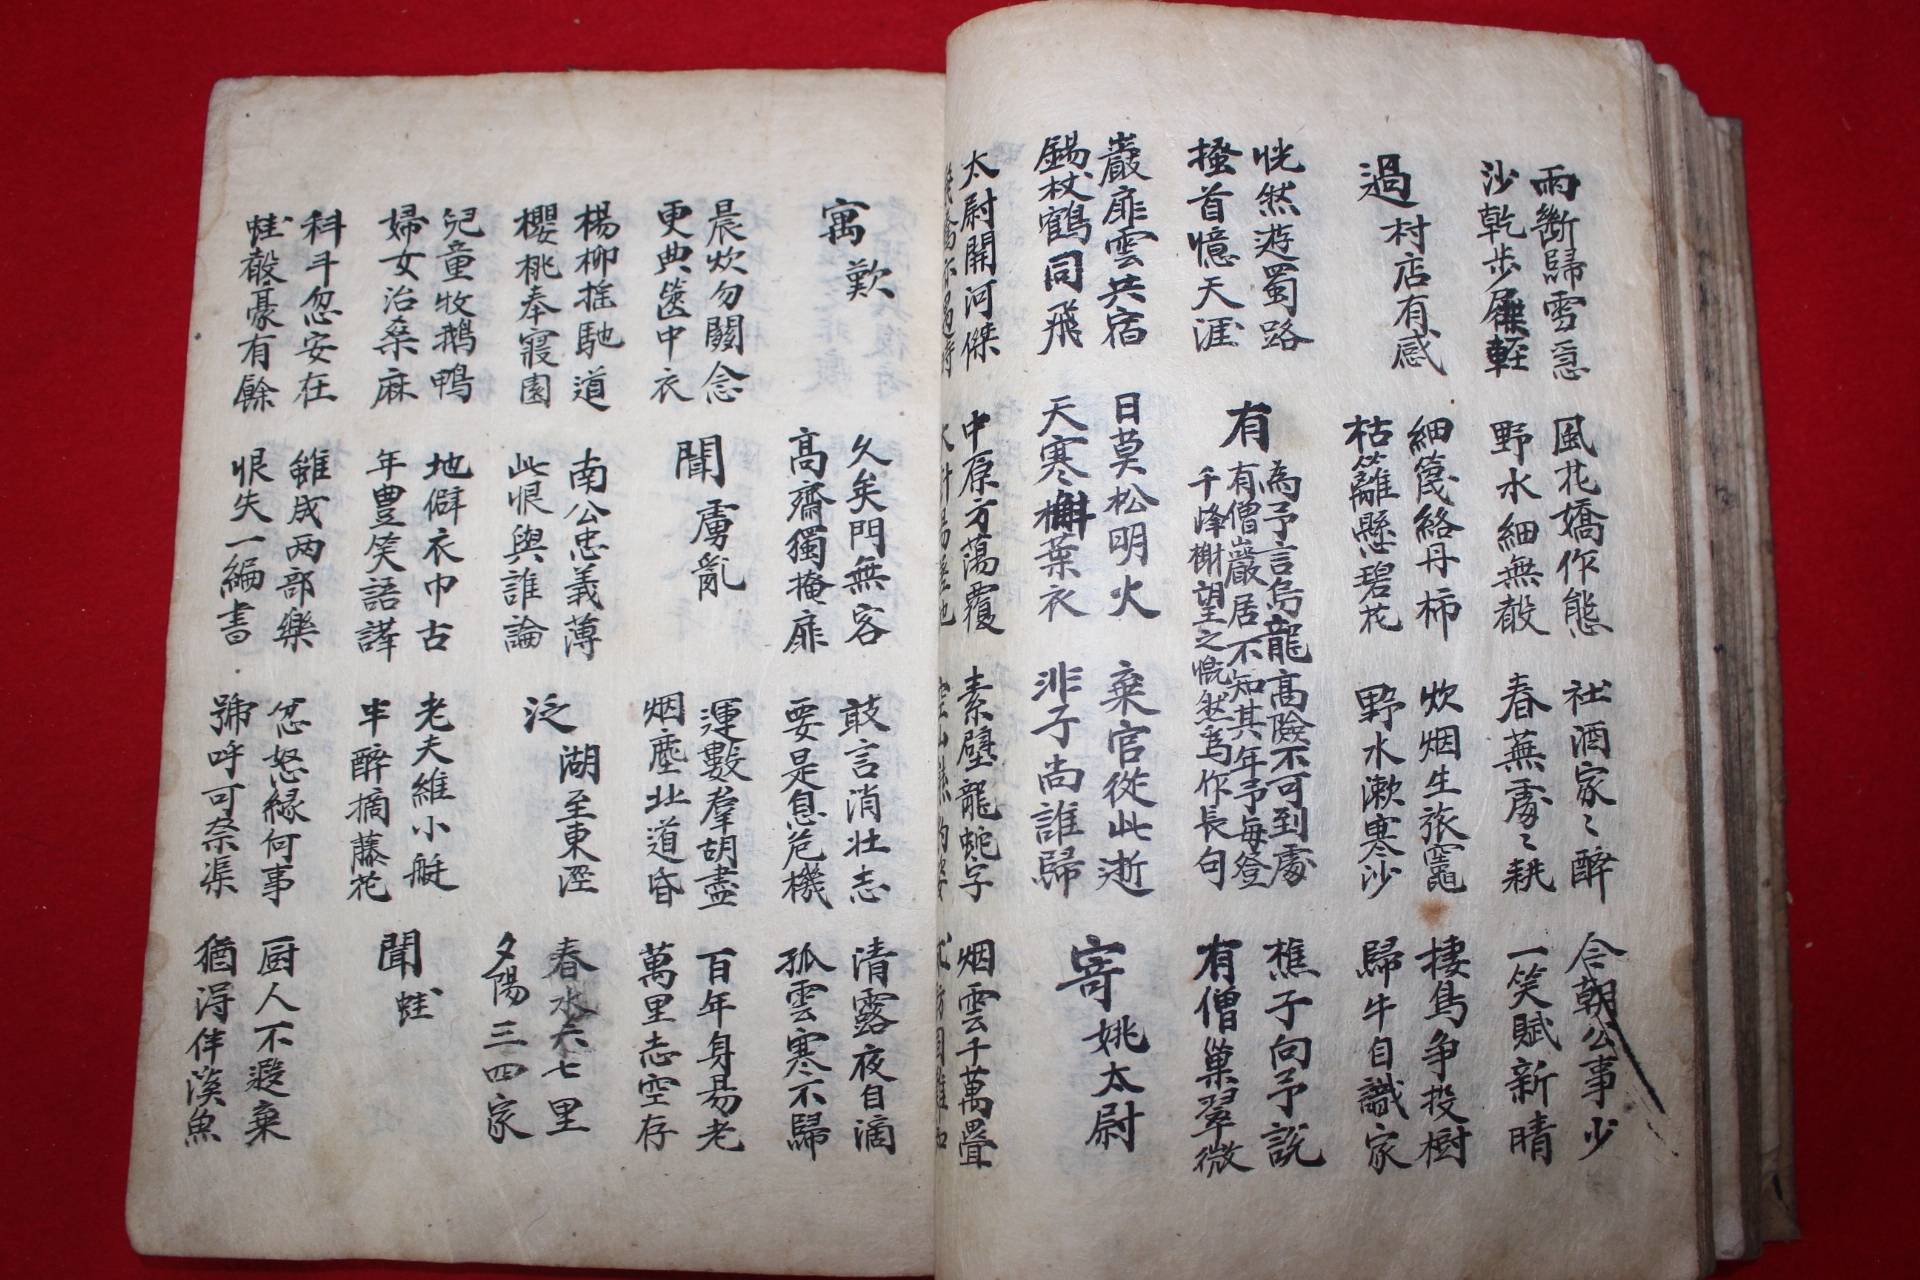 雨斷歸雪急
沙乾步屧輕
風花嬌作態
野水細無聲
社酒家〻醉
春蕪處〻耕
今朝公事少
一笑賦新晴
過村店有感
細篾絡丹柿
枯籬懸碧花
炊烟生旅竈
野水漱寒沙
棲鳥爭投樹
歸牛自識家
恍然遊蜀路
搔首憶天涯
有為予言烏龍高險不可到處
有僧巖居不知其年予每登
千峰榭望之慨然為作長句
樵子向予說
有僧巢翠微
巖扉雲共宿
錫杖鶴同飛
日莫松明火
天寒槲葉衣
棄官從此逝
非子尚誰歸
寄姚太尉
太尉關河傑
中原方蕩覆
素壁龍蛇字
烟雲千萬疊
寓歎
久矣門無客
高齋獨掩扉
敢言消壯志
要是息危機
清露夜自滴
孤雲寒不歸
晨炊勿關念
更典篋中衣
聞虜亂
運數羣胡盡
烟塵北道昏
百年身易老
萬里志空存
楊柳搖馳道
櫻桃奉寢園
南公忠義薄
此恨與誰論
泛湖至東涇
春水六七里
夕陽三四家
兒童牧鵝鴨
婦女治桑麻
地僻衣巾古
年豊笑語譁
老夫維小艇
半醉摘藤花
聞蛙
科斗忽安在
蛙聲豪有餘
雖成两部樂
恨失一編書
忿怒緣何事
號呼可奈渠
厨人不遐棄
猶得伴溪魚